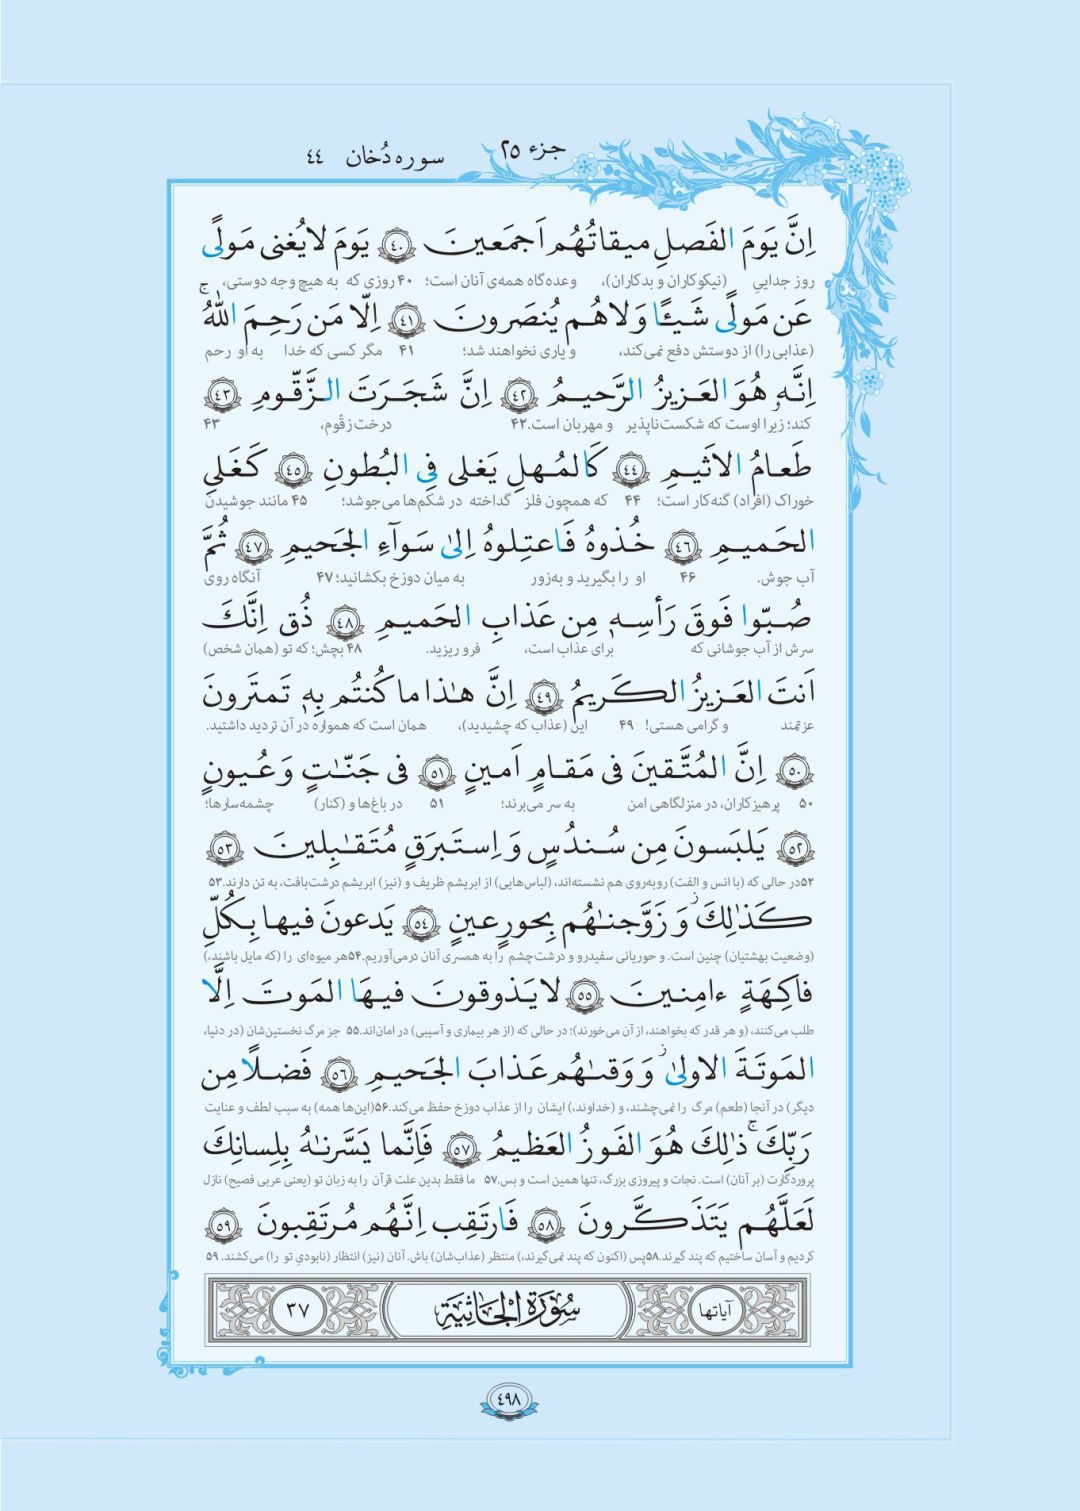 جزء ۲۵
سوره دُخان ٤٤
اِنَّ يَومَ الفَصلِ ميقاتُهُم اَجمَعينَ ٤٠ يَومَ لايُغنى مَولًى
روز جدایی (نیکوکاران و بدکاران)، وعده‌گاه همه‌ی آنان است؛ ۴۰ روزی که به هیچ وجه دوستی،
عَن مَولًى شَيـًٔا وَلاهُم يُنصَرونَ ٤١ اِلّا مَن رَحِمَ اللّٰهُ ۚ
(عذابی را) از دوستش دفع نمی‌کند، و یاری نخواهند شد؛ ۴۱ مگر کسی که خدا به او رحم
اِنَّهٗ هُوَ العَزيزُ الرَّحيمُ ٤٢ اِنَّ شَجَرَتَ الزَّقّومِ ٤٣
کند؛ زیرا اوست که شکست‌ناپذیر و مهربان است.۴۲ درخت زقّوم، ۴۳
طَعامُ الاَثيمِ ٤٤ كَالمُهلِ يَغلى فِى البُطونِ ٤٥ كَغَلىِ
خوراک (افراد) گنه‌کار است؛ ۴۴ که همچون فلز گداخته در شکم‌ها می‌جوشد؛ ۴۵ مانند جوشیدن
الحَميمِ ٤٦ خُذوهُ فَاعتِلوهُ اِلىٰ سَوآءِ الجَحيمِ ٤٧ ثُمَّ
آب جوش. ۴۶ او را بگیرید و به‌زور به میان دوزخ بکشانید؛ ۴۷ آنگاه روی
صُبّوا فَوقَ رَأسِهٖ مِن عَذابِ الحَميمِ ٤٨ ذُق اِنَّكَ
سرش از آب جوشانی که برای عذاب است، فرو ریزید. ۴۸ بچش؛ که تو (همان شخص)
اَنتَ العَزيزُ الكَريمُ ٤٩ اِنَّ هٰذا ما كُنتُم بِهٖ تَمتَرونَ
عزتمند و گرامی هستی! ۴۹ این (عذاب که چشیدید)، همان است که همواره در آن تردید داشتید.
٥٠ اِنَّ المُتَّقينَ فى مَقامٍ اَمينٍ ٥١ فى جَنّٰتٍ وَعُيونٍ
۵۰ پرهیزکاران، در منزلگاهی امن به سر می‌برند؛ ۵۱ در باغ‌ها و (کنار) چشمه‌سارها؛
٥٢ يَلبَسونَ مِن سُندُسٍ وَاِستَبرَقٍ مُتَقٰبِلينَ ٥٣
۵۲در حالی که (با انس و الفت) روبه‌روی هم نشسته‌اند، (لباس‌هایی) از ابریشم ظریف و (نیز) ابریشم درشت‌بافت، به تن دارند.۵۳
كَذٰلِكَ ز وَزَوَّجنٰهُم بِحورٍ عينٍ ٥٤ يَدعونَ فيها بِكُلِّ
(وضعیت بهشتیان) چنین است. و حوریانی سفیدرو و درشت‌چشم را به همسری آنان درمی‌آوریم.۵۴هر میوه‌ای را (که مایل باشند،)
فاكِهَةٍ ءامِنينَ ٥٥ لايَذوقونَ فيهَا المَوتَ اِلَّا
طلب می‌کنند، (و هر قدر که بخواهند، از آن می‌خورند)؛ در حالی که (از هر بیماری و آسیبی) در امان‌اند.۵۵ جز مرگ نخستین‌شان (در دنیا،
المَوتَةَ الاولىٰ ز وَوَقىٰهُم عَذابَ الجَحيمِ ٥٦ فَضلًا مِن
دیگر) در آنجا (طعم) مرگ را نمی‌چشند، و (خداوند،) ایشان را از عذاب دوزخ حفظ می‌کند.۵۶(این‌ها همه) به سبب لطف و عنایت
رَبِّكَ ۚ ذٰلِكَ هُوَ الفَوزُ العَظيمُ ٥٧ فَاِنَّما يَسَّرنٰهُ بِلِسانِكَ
پروردگارت (بر آنان) است. نجات و پیروزی بزرگ، تنها همین است و بس.۵۷ ما فقط بدین علت قرآن را به زبان تو (یعنی عربی فصیح) نازل
لَعَلَّهُم يَتَذَكَّرونَ ٥٨ فَارتَقِب اِنَّهُم مُرتَقِبونَ ٥٩
کردیم و آسان ساختیم که پند گیرند.۵۸پس (اکنون که پند نمی‌گیرند،) منتظر (عذاب‌شان) باش. آنان (نیز) انتظار (نابودیِ تو را) می‌کشند. ۵۹
آیاتها سُورَةُ الجَاثِيَةِ ٣٧
٤٩٨